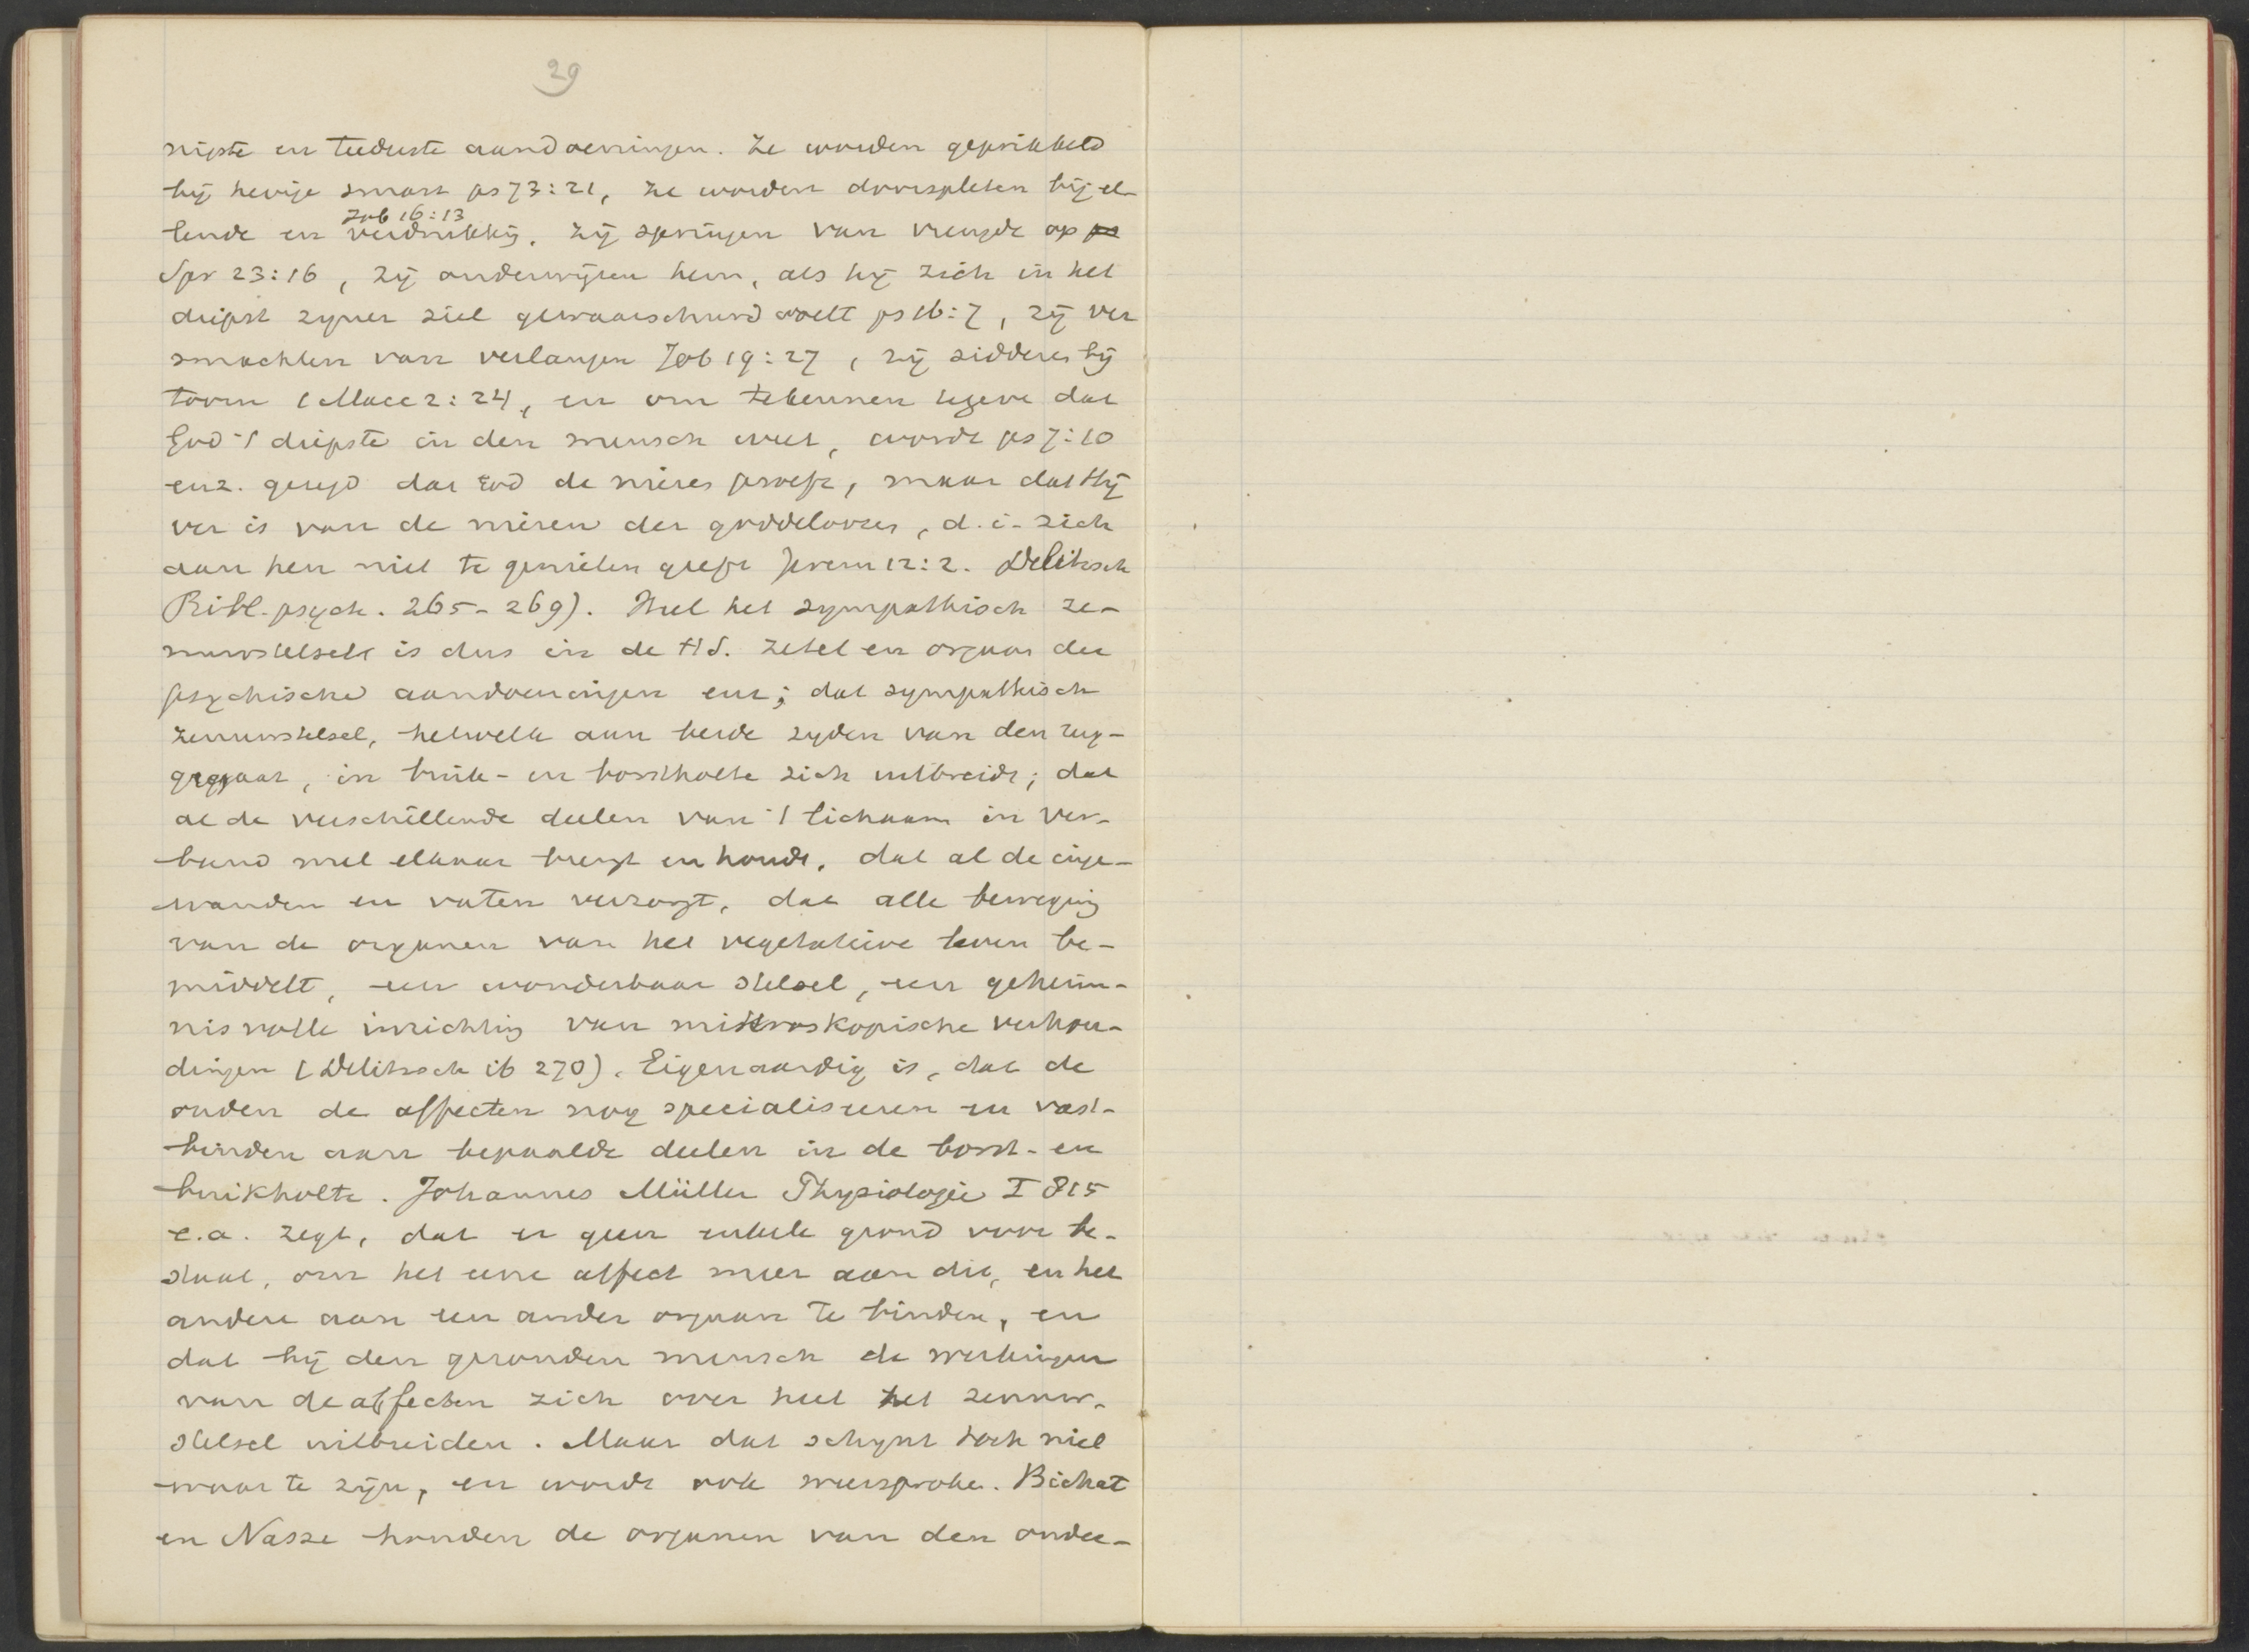 29
nigste en teederste aandoeningen. Ze worden geprikkeld
bij hevige smart ps 73:21, ze worden doorspleten bij el-
Job 16:13
lende en verdrukkg. Zij springen van vreugde op
Spr 23:16, zij onderwijzen hem, als hij zich in het
diepst zijner ziel gewaarschuwd voelt ps 16:7, zij ver
smachten van verlangen Job 19:27, zij sidderen bij
toorn 1 Macc 2:24, en om te kennen tegeven dat
God 't diepste in den mensch weet, wordt ps 7:10
enz. gezegd dat God de nieren proeft, maar dat Hij
ver is van de nieren der goddeloozen, d.i. zich
aan hen niet te genieten geeft Jerem 12:2. Delitzsch
Bibl. psych. 265-269). Heel het sympathisch ze-
nuwstelsel is dus in de H.S. zetel en orgaan der
psychische aandoeningen enz; dat sympathisch
zenuwstelsel, hetwelk aan beide zyden van den rug-
gegraat, in buik- en borstholte zich uitbreidt; dat
al de verschillende deelen van 't lichaam in ver-
band met elkaar brengt en houdt, dat al de inge-
wanden en vaten verzorgt, dat alle beweging
van de organen van het vegetatieve leven be-
middelt, een wonderbaar stelsel, een geheim-
nisvolle inrichting van mikroskopische verhou-
dingen (Delitzsch ib 270). Eigenaardig is, dat de
ouden de affecten nog specialiseeren en vast-
binden aan bepaalde deelen in de borst- en
buikholte. Johannes Müller Physiologie I 815
e.a. zegt, dat er geen enkele grond voor be-
staat, om het eene affect meer aan dit, en het
andere aan een ander orgaan te binden, en
dat bij den gezonden mensch de werkingen
van de affecten zich over heel het zenuw-
stelsel uitbreiden. Maar dat schynt toch niet
waar te zijn, en wordt ook weersproken. Bichat
en Nasse houden de organen van den onder-